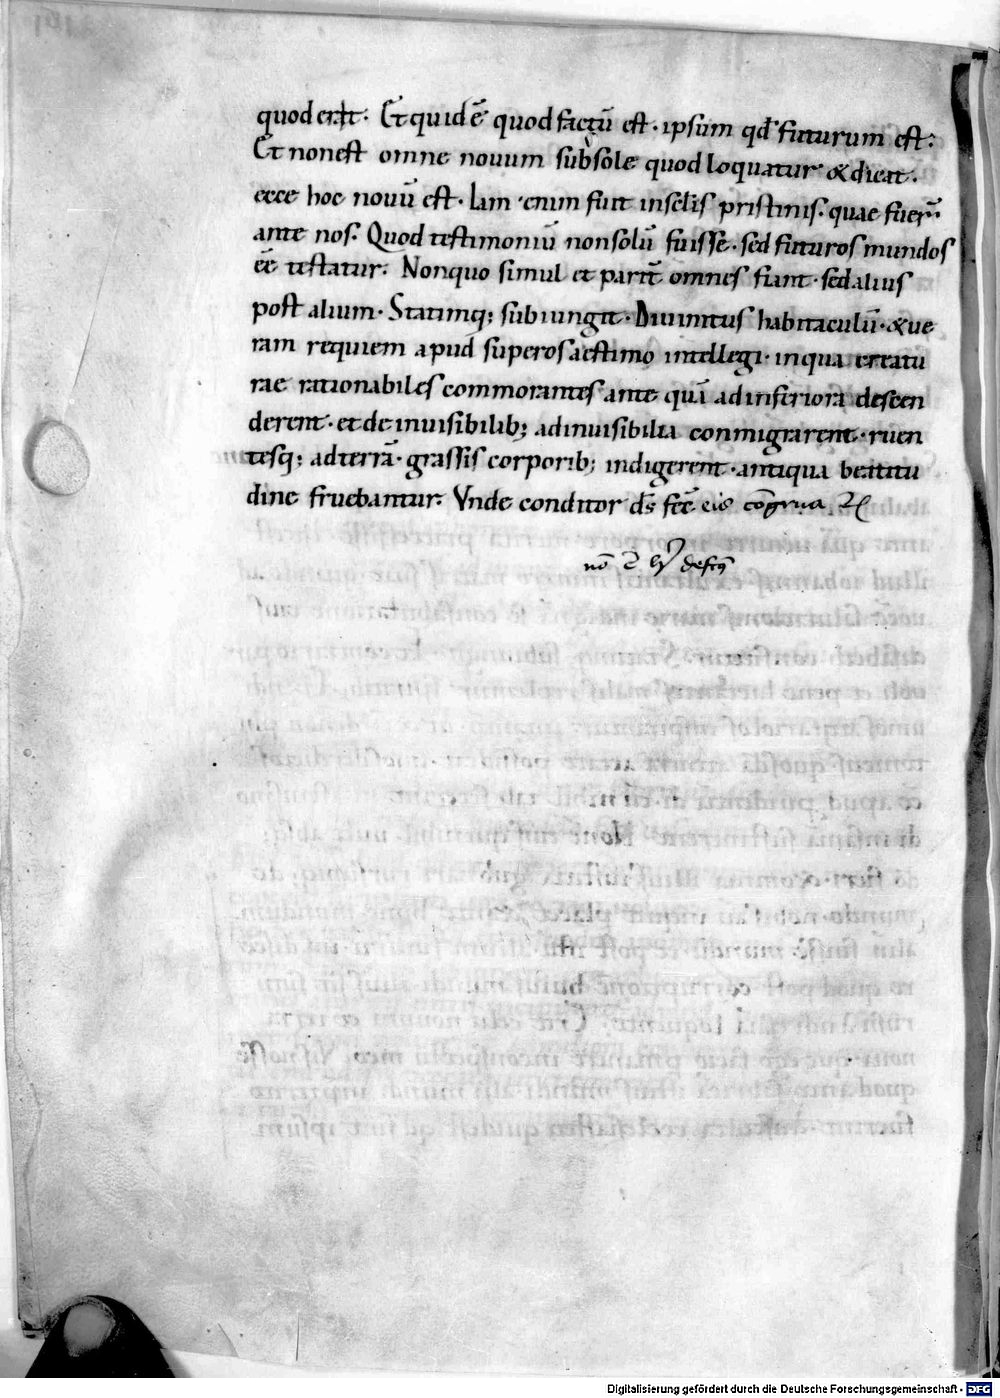 quod erit. Et quid ē quod factū est. ipsum qđ futurum est.
Et non est omne nouum sub sole quod loquatur & dicat.
ecce hoc nouū est. Iam enim fuit in sclis pristinis. quae fuer̄
ante nos. Quod testimoniū non solū fuisse. sed futuros mundos
eē testatur. Non quo simul et parit̄ omnes fiant. sed alius
post alium. Statimq; subiungit. Diuinitus habitaculū. & ue
ram requiem apud superos aestimo intellegi. in qua creatu
rae rationabiles commorantes ante quā ad inferiora descen
derent. et de inuisibilib; ad inuisibilia conmigrarent. ruen
tesq; ad terrā. grassis corporib; indigerent. antiqua beatitu
dine fruebantur. Vnde conditor ds̄ fec̄ eis cōgrua
nō ē hic defectus
Digitalisierung gefördert durch die Deutsche Forschungsgemeinschaft - DFG